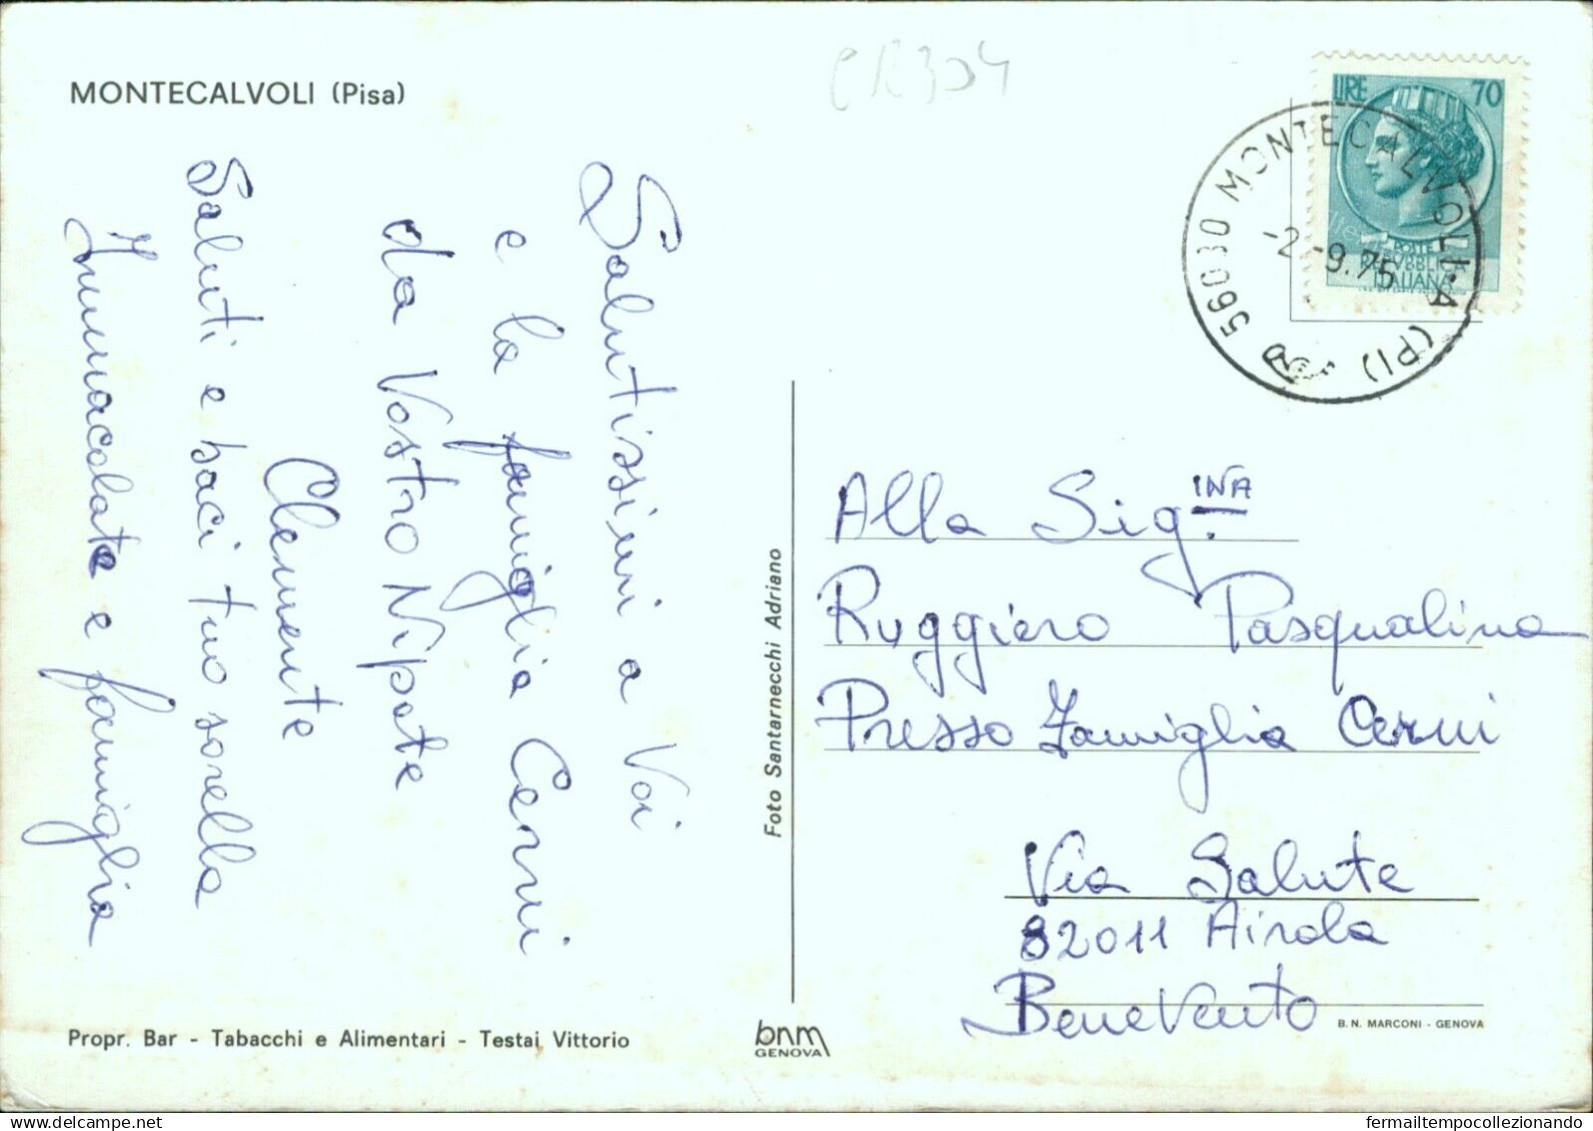 MONTECALVOLI (Pisa)
CR304
LIRE 70
POSTE
REPVBBLICA
ITALIANA
56030 MONTECALVOLI·A (PI)
-2.-9.75
Salutissimi a Voi
e la famiglia Cerni
da Vostro Nipote
Clemente
Saluti e baci tuo sorella
Immacolata e famiglia
Foto Santarnecchi Adriano
Alla Sig.INA
Ruggiero Pasqualina
Presso Famiglia Cerni
Via Salute
82011 Airola
Benevento
Propr. Bar - Tabacchi e Alimentari - Testai Vittorio
bnm
GENOVA
B. N. MARCONI - GENOVA
fermailtempocollezionando